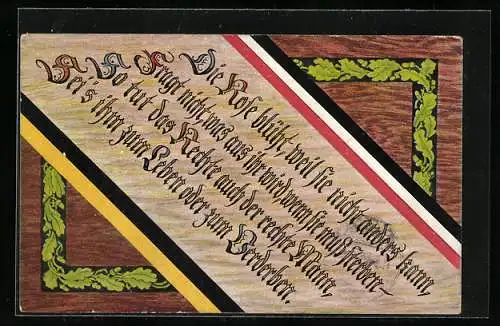 Die Rose blüht, weil sie nicht anders kann,
Fragt nicht was aus ihr wird wenn sie muß sterben
So tut das Rechte auch der rechte Mann,
Sei's ihm zum Leben oder zum Verderben.